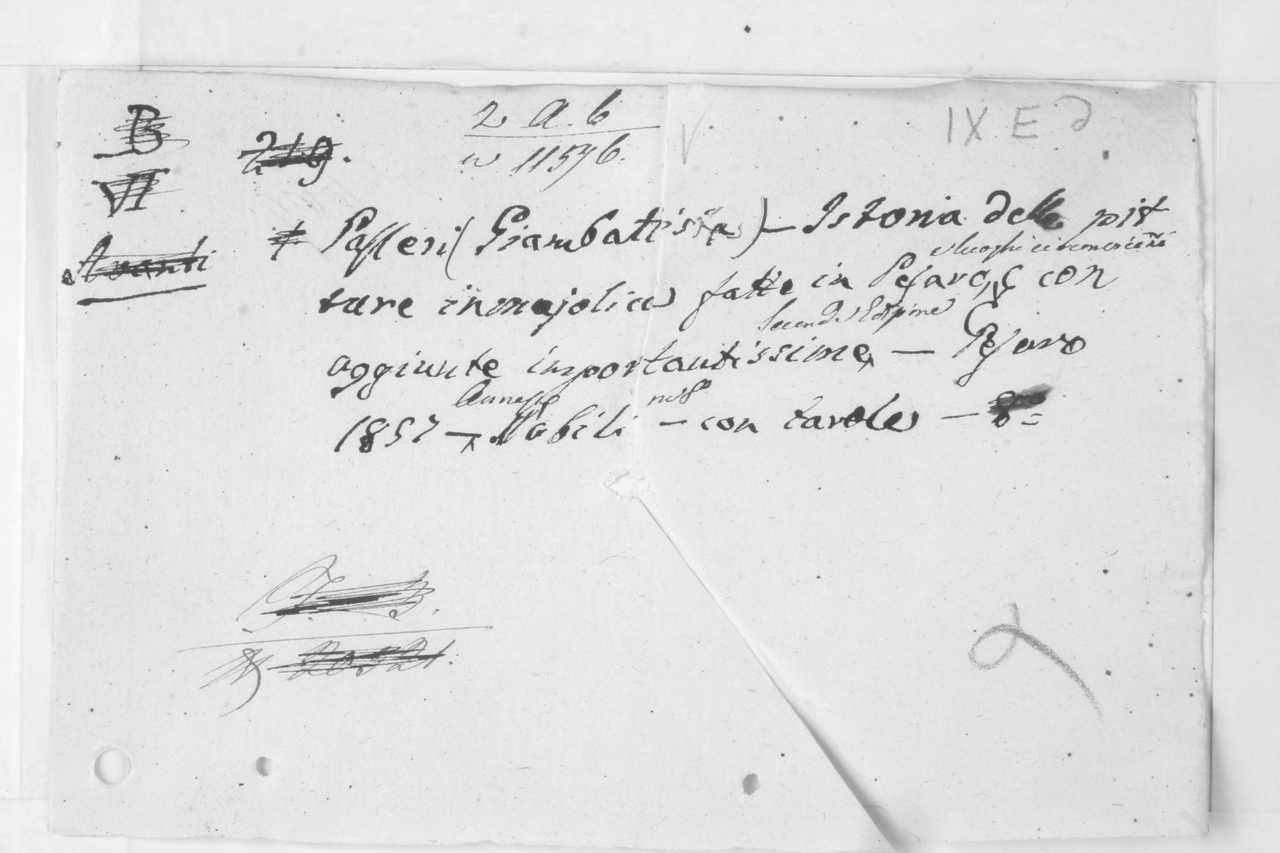 B
VI
219.
2 a. b
n 11576.
IX E d
Avanti
Passeri (Giambattista) – Istoria delle pit
e luoghi circonvicini
ture in majolica fatte in Pesaro, con
Seconda Edizione
aggiunte importantissime – Pesaro
Annesio in 8º
1857 – Nobili – con tavole – 8º